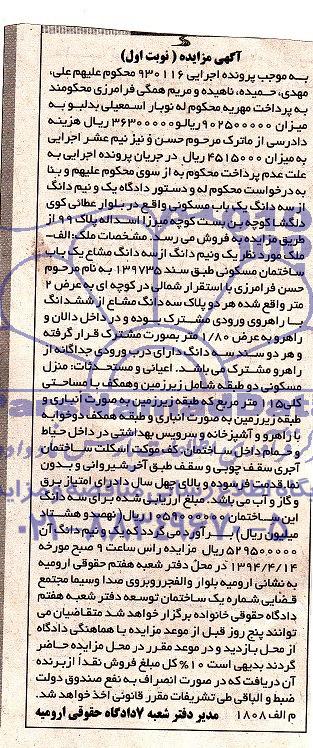 آگهی مزایده ( نوبت اول)
به موجب پرونده اجرایی ۹۳۰۱۱۶ محکوم علیهم علی،
مهدی، حمیده، ناهیده و مریم همگی فرامرزی محکومند
به پرداخت مهریه محکوم له نوبار اسمعیلی بدلبو به
میزان ۹۰۲۵۰۰۰۰۰ ریال و ۳۶۳۰۰۰۰۰ ریال هزینه
دادرسی از ماترک مرحوم حسن و نیز نیم عشر اجرایی
به میزان ۴۵۱۵۰۰۰ ریال در جریان پرونده اجرایی به
علت عدم پرداخت محکوم به از سوی محکوم علیهم و بنا
به درخواست محکوم له و دستور دادگاه یک و نیم دانگ
از سه دانگ یک باب مسکونی واقع در بلوار عطائی کوی
دلگشا کوچه بن بست کوچه میرزا اسداله پلاک ۹۹ از
طریق مزایده به فروش می رسد. مشخصات ملک: الف-
ملک مورد نظر یک و نیم دانگ از سه دانگ مشاع یک باب
ساختمان مسکونی طبق سند ۱۳۹۷۳۵ به نام مرحوم
حسن فرامرزی با استقرار شمالی در کوچه ای به عرض ۲
متر واقع شده هر دو پلاک سه دانگ مشاع از ششدانگ
با راهروی ورودی مشترک بوده و در داخل دالان و
راهرو به عرض ۱/۸۰ متر بصورت مشترک قرار گرفته
و هر دو سند سه دانگ دارای درب ورودی جداگانه از
راهرو مشترک می باشد. اعیانی و مستحدثات: منزل
مسکونی دو طبقه شامل زیرزمین و همکف با مساحتی
کلی ۱۱۵ متر مربع که طبقه زیرزمین به صورت انباری و
طبقه زیرزمین به صورت انباری و طبقه همکف دو خوابه
با راهرو و آشپزخانه و سرویس بهداشتی در داخل حیاط
و حمام در داخل ساختمان، کف موکت اسکلت ساختمان
آجری سقف چوبی و سقف طبق آخر شیروانی و بدون
نما قدمت فرسوده و بالای چهل سال دارای امتیاز برق
و گاز و آب می باشد. مبلغ ارزیابی شده برای سه دانگ
این ساختمان ۱۰۵۹۰۰۰۰۰۰ ریال (نهصد و هشتاد
میلیون ریال) برآورد می گردد که یک و نیم دانگ آن
۵۲۹۵۰۰۰۰۰ ریال مزایده راس ساعت ۹ صبح مورخه
۱۳۹۴/۴/۱۴ در محل دفتر شعبه هفتم حقوقی ارومیه
به نشانی ارومیه بلوار والفجر روبروی صدا و سیما مجتمع
قضایی شماره یک ساختمان توسعه دفتر شعبه هفتم
دادگاه حقوقی خانواده برگزار خواهد شد متقاضیان می
توانند پنج روز قبل از موعد مزایده با هماهنگی دادگاه
از محل بازدید و در موعد مقرر در محل مزایده حاضر
گردند بدیهی است ۱۰% کل مبلغ فروش نقداً از برنده
آن دریافت که در صورت انصراف به نفع صندوق دولت
ضبط و الباقی طی تشریفات مقرر قانونی اخذ خواهد شد.
م الف ۱۸۰۸ مدیر دفتر شعبه ۷ دادگاه حقوقی ارومیه
۰۲۱-۸۸۳۴۹۶۷۰-۵